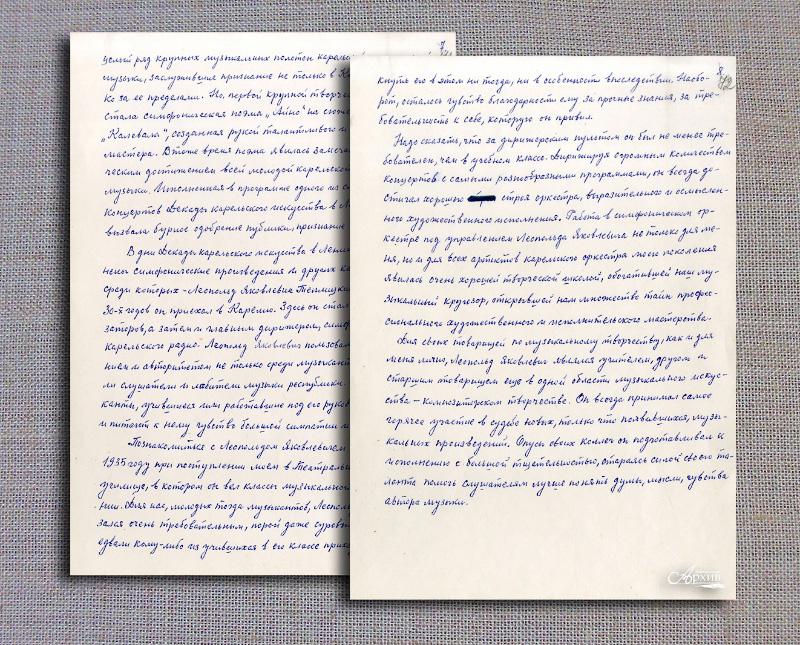 7
целый ряд крупных музыкальных полотен карельской
музыки, заслуживших признание не только в К
ко за ее пределами. Но, первой крупной творчес
стала симфоническая поэма „Айно“ на сюже
„Калевала“, созданная рукой талантливого и
мастера. В то же время поэма явилась замеча
ческим достижением всей молодой карельско
музыки. Исполненная в программе одного из с
концертов Декады карельского искусства в Л
вызвала бурное одобрение публики, признание
В дни Декады карельского искусства в Ленин
нены симфонические произведения и других ко
среди которых – Леопольд Яковлевич Теплицки
30-х годов он приехал в Карелию. Здесь он стал
затором, а затем и главным дирижером, симф
карельского радио. Леопольд Яковлевич пользовал
нием и авторитетом не только среди музыкант
ли слушатели и любители музыки республики.
канты, учившиеся или работавшие под его руков
и питают к нему чувство большой симпатии и
Познакомился с Леопольдом Яковлевичем
1935 году при поступлении моем в Театраль
училище, в котором он вел классы музыкально
нии. Для нас, молодых тогда музыкантов, Леополь
зался очень требовательным, порой даже суровы
едва ли кому-либо из учившихся в его классе прихо
8
72
кнуть его в этом ни тогда, ни в особенности впоследствии. Наобо-
рот, осталось чувство благодарности ему за прочные знания, за тре-
бовательность к себе, которую он привил.
Надо сказать, что за дирижерским пультом он был не менее тре-
бователен, чем в учебном классе. Дирижируя огромным количеством
концертов с самыми разнообразными программами, он всегда до-
стигал хорошего строя оркестра, выразительного и осмыслен-
ного художественного исполнения. Работа в симфоническом ор-
кестре под управлением Леопольда Яковлевича не только для ме-
ня, но и для всех артистов карельского оркестра моего поколения
явилась очень хорошей творческой школой, обогатившей наш му-
зыкальный кругозор, открывшей нам множество тайн профес-
сионального художественного и исполнительского мастерства.
Для своих товарищей по музыкальному творчеству, как и для
меня лично, Леопольд Яковлевич являлся учителем, другом и
старшим товарищем еще в одной области музыкального искус-
ства – композиторском творчестве. Он всегда принимал самое
горячее участие в судьбе новых, только что появившихся, музы-
кальных произведений. Опусы своих коллег он подготавливал к
исполнению с большой тщательностью, стараясь силой своего та-
ланта помочь слушателям лучше понять думы, мысли, чувства
автора музыки.
САрхив